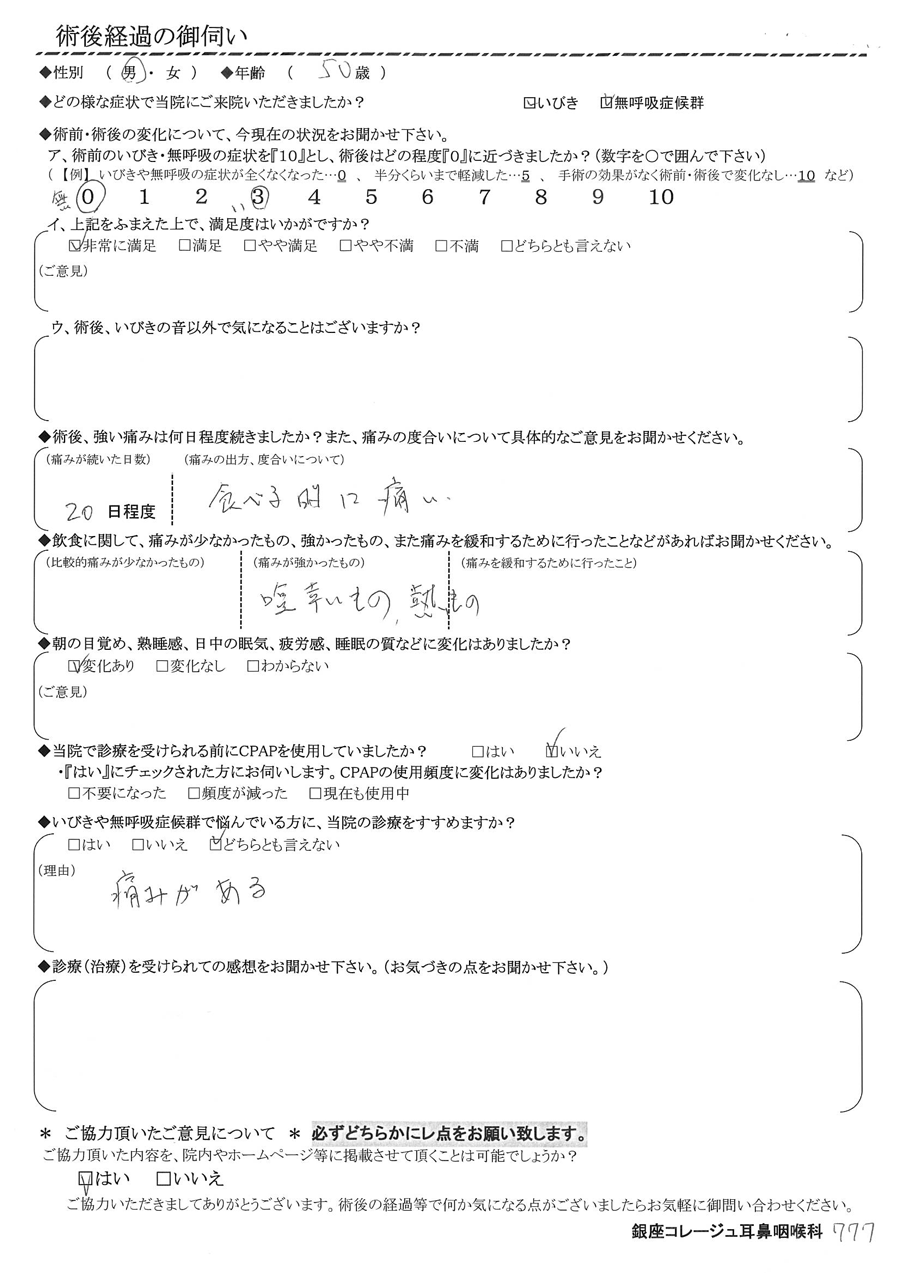 術後経過の御伺い
◆性別 ( 男・ 女 ) ◆年齢 ( 50歳 )
◆どの様な症状で当院にご来院いただきましたか? ☑いびき ☑無呼吸症候群
◆術前・術後の変化について、今現在の状況をお聞かせ下さい。
ア、術前のいびき・無呼吸の症状を『10』とし、術後はどの程度『0』に近づきましたか?(数字を○で囲んで下さい)
(【例】いびきや無呼吸の症状が全くなくなった…0 、 半分くらいまで軽減した…5 、 手術の効果がなく術前・術後で変化なし…10 など)
無 0 1 2 い 3 4 5 6 7 8 9 10
イ、上記をふまえた上で、満足度はいかがですか?
☑非常に満足 □満足 □やや満足 □やや不満 □不満 □どちらとも言えない
(ご意見)
ウ、術後、いびきの音以外で気になることはございますか?
◆術後、強い痛みは何日程度続きましたか?また、痛みの度合いについて具体的なご意見をお聞かせください。
(痛みが続いた日数) (痛みの出方、度合いについて)
20 日程度 食べる時に痛い.
◆飲食に関して、痛みが少なかったもの、強かったもの、また痛みを緩和するために行ったことなどがあればお聞かせください。
(比較的痛みが少なかったもの) (痛みが強かったもの) (痛みを緩和するために行ったこと)
辛いもの、熱いもの
◆朝の目覚め、熟睡感、日中の眠気、疲労感、睡眠の質などに変化はありましたか?
☑変化あり □変化なし □わからない
(ご意見)
◆当院で診療を受けられる前にCPAPを使用していましたか? □はい ☑いいえ
・『はい』にチェックされた方にお伺いします。CPAPの使用頻度に変化はありましたか?
□不要になった □頻度が減った □現在も使用中
◆いびきや無呼吸症候群で悩んでいる方に、当院の診療をすすめますか?
□はい □いいえ ☑どちらとも言えない
(理由)
痛みがある
◆診療(治療)を受けられての感想をお聞かせ下さい。(お気づきの点をお聞かせ下さい。)
＊ ご協力頂いたご意見について ＊ 必ずどちらかにレ点をお願い致します。
ご協力頂いた内容を、院内やホームページ等に掲載させて頂くことは可能でしょうか?
☑はい □いいえ
ご協力いただきましてありがとうございます。術後の経過等で何か気になる点がございましたらお気軽に御問い合わせください。
銀座コレージュ耳鼻咽喉科 777